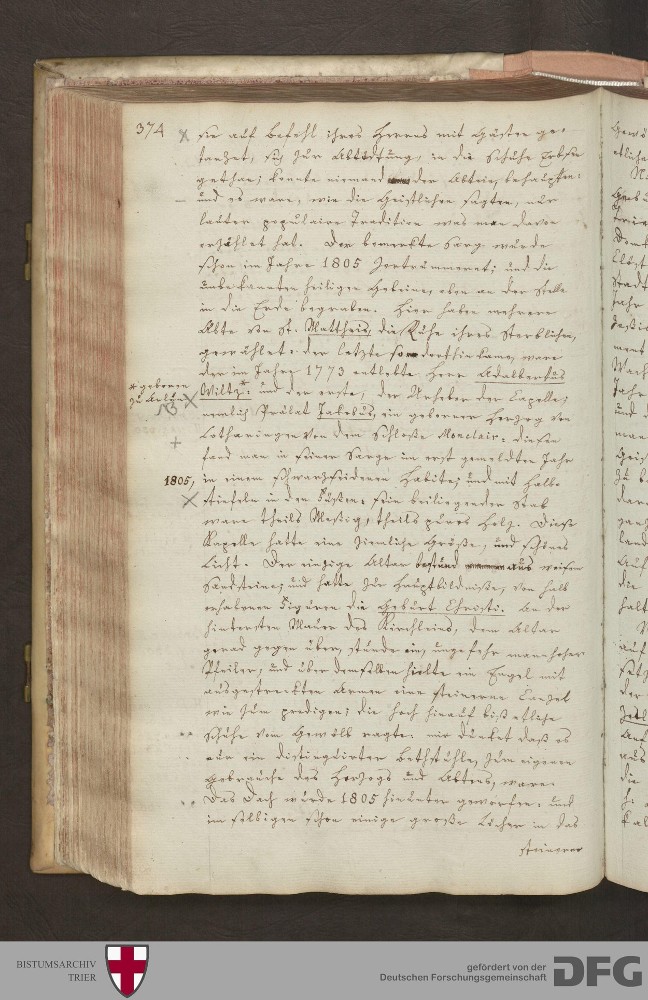 374
sie auf Befehl ihres Herrens mit Gästen ge-
tanzet, sich zur Abtödtung, in die Schuhe Erbse
gethan; konnte niemand der Abtein behaupten:
und es ware, wie die Geistlichen sagten, nur
lauter populaire Tradition was man davon
erzählet hat. Der bemerkte Sarg wurde
schon im Jahre 1805 zertrümmeret; und die
unbekannten heiligen Gebeine, eben an der Stelle
in die Erde begraben. Hier haben mehrere
Äbte von St. Mattheis, die Ruhe ihres Sterblichen,
gewählet: der letzte so dorthin kame, ware
der im Jahre 1773 entlebte Herr Adalbertus
* geboren
zu Arlun
Wiltz:* und der erste, der Urheber der Capelle;
nemlich Prälat Jakobus, ein geborner Herzog von
Lotharingen von dem Schloße Monclair: diesen
fand man in seinem Sarge im erst gemeldten Jahr
1805, in einem schwarzseidenen Habite; und mit halbe
Stiefeln in den Füßen: sein beiliegender Stab
ware theils Meßig, theils pures Holz. Diese
Kapelle hatte eine ziemliche Größe, und schönes
Licht. Der einzige Altar bestund aus weisem
Sandsteine; und hatte zur Hauptbildniße, von halb
erhabenen Figuren die Geburt Christi. An der
hintersten Mauer des Kirchleins, dem Altar
gerad gegen über, stunde ein, ungefehr mannhoher
Pfeiler; und über demselben hielte ein Engel mit
ausgestreckten Armen eine steinerne Canzel
wie zum predigen; die hoch hinauf biß etliche
Schuhe vom Gewölb ragte: mir dunket daß es
nur ein distinguirter Bethstuhle, zum eigenen
Gebrauche des Herzogs und Abtens, ware.
Das Dach wurde 1805 hinunter geworfen: und
im selbigen schon einige große Löcher in das
steinerne
BISTUMSARCHIV
TRIER
gefördert von der
Deutschen Forschungsgemeinschaft
DFG